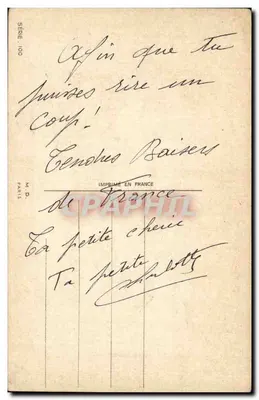 SÉRIE 100
Afin que tu
puisses rire un
coup!
Tendres Baisers
IMPRIMÉ EN FRANCE
de France
CPAPHIL
Ta petite cherie
Ta petite
M.D.
PARIS